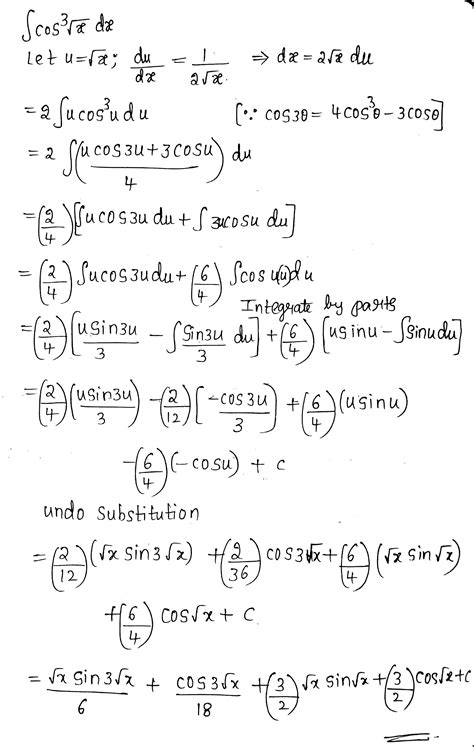 ∫cos³√x dx
Let u=√x; du/dx = 1/(2√x) ⇒ dx = 2√x du
= 2∫u cos³u du [∵ cos3θ = 4cos³θ - 3cosθ]
= 2 ∫((u cos3u + 3cosu)/4) du
= (2/4)[∫u cos3u du + ∫3u cosu du]
= (2/4) ∫u cos3u du + (6/4) ∫cos u(u) du
Integrate by parts
= (2/4) [u sin3u/3 - ∫sin3u/3 du] + (6/4) [u sinu - ∫sinu du]
= (2/4)(u sin3u/3) - (2/12)[-cos3u/3] + (6/4)(u sinu)
-(6/4)(-cosu) + c
undo substitution
= (2/12)(√x sin3√x) + (2/36) cos3√x + (6/4)(√x sin√x)
+(6/4) cos√x + C
= √x sin3√x/6 + cos3√x/18 + (3/2)√x sin√x + (3/2)cos√x + c